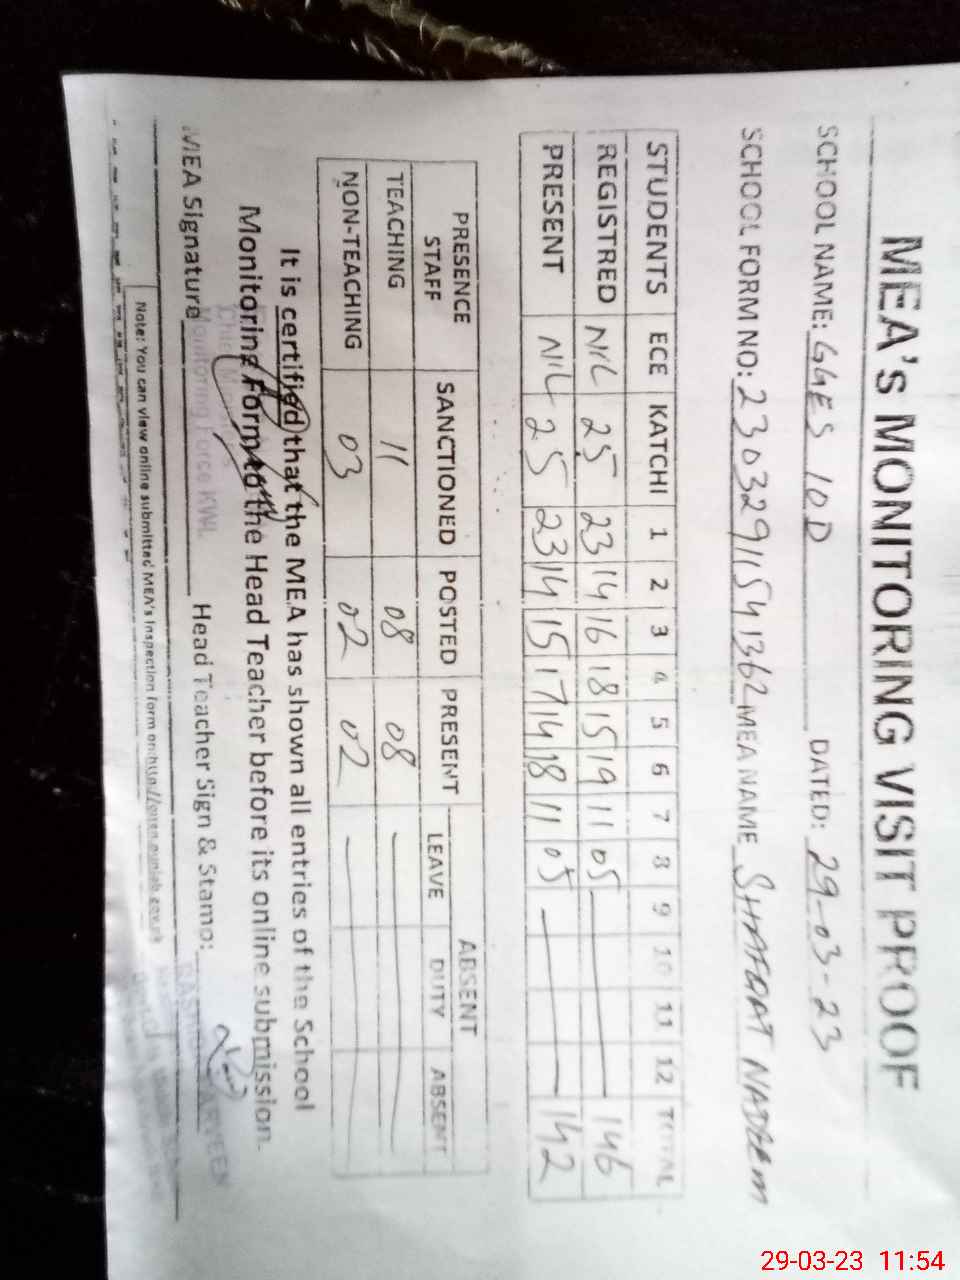 MEA's MONITORING VISIT PROOF
SCHOOL NAME: GGES 10D DATED: 29-03-23
SCHOOL FORM NO: 23032911541362 MEA NAME SHAFQAT NADEEM
STUDENTS ECE KATCHI 1 2 3 4 5 6 7 8 9 10 11 12 TOTAL
REGISTRED NIL 25 23 14 16 18 15 19 11 05 146
PRESENT NIL 25 23 14 15 17 14 18 11 05 142
PRESENCE STAFF SANCTIONED POSTED PRESENT ABSENT
LEAVE DUTY ABSENT
TEACHING 11 08 08
NON-TEACHING 03 02 02
It is certified that the MEA has shown all entries of the School
Monitoring Form to the Head Teacher before its online submission.
Monitoring Force KWL
MEA Signature Head Teacher Sign & Stamp:
Note: You can view online submitted MEA's inspection form on:
29-03-23 11:54